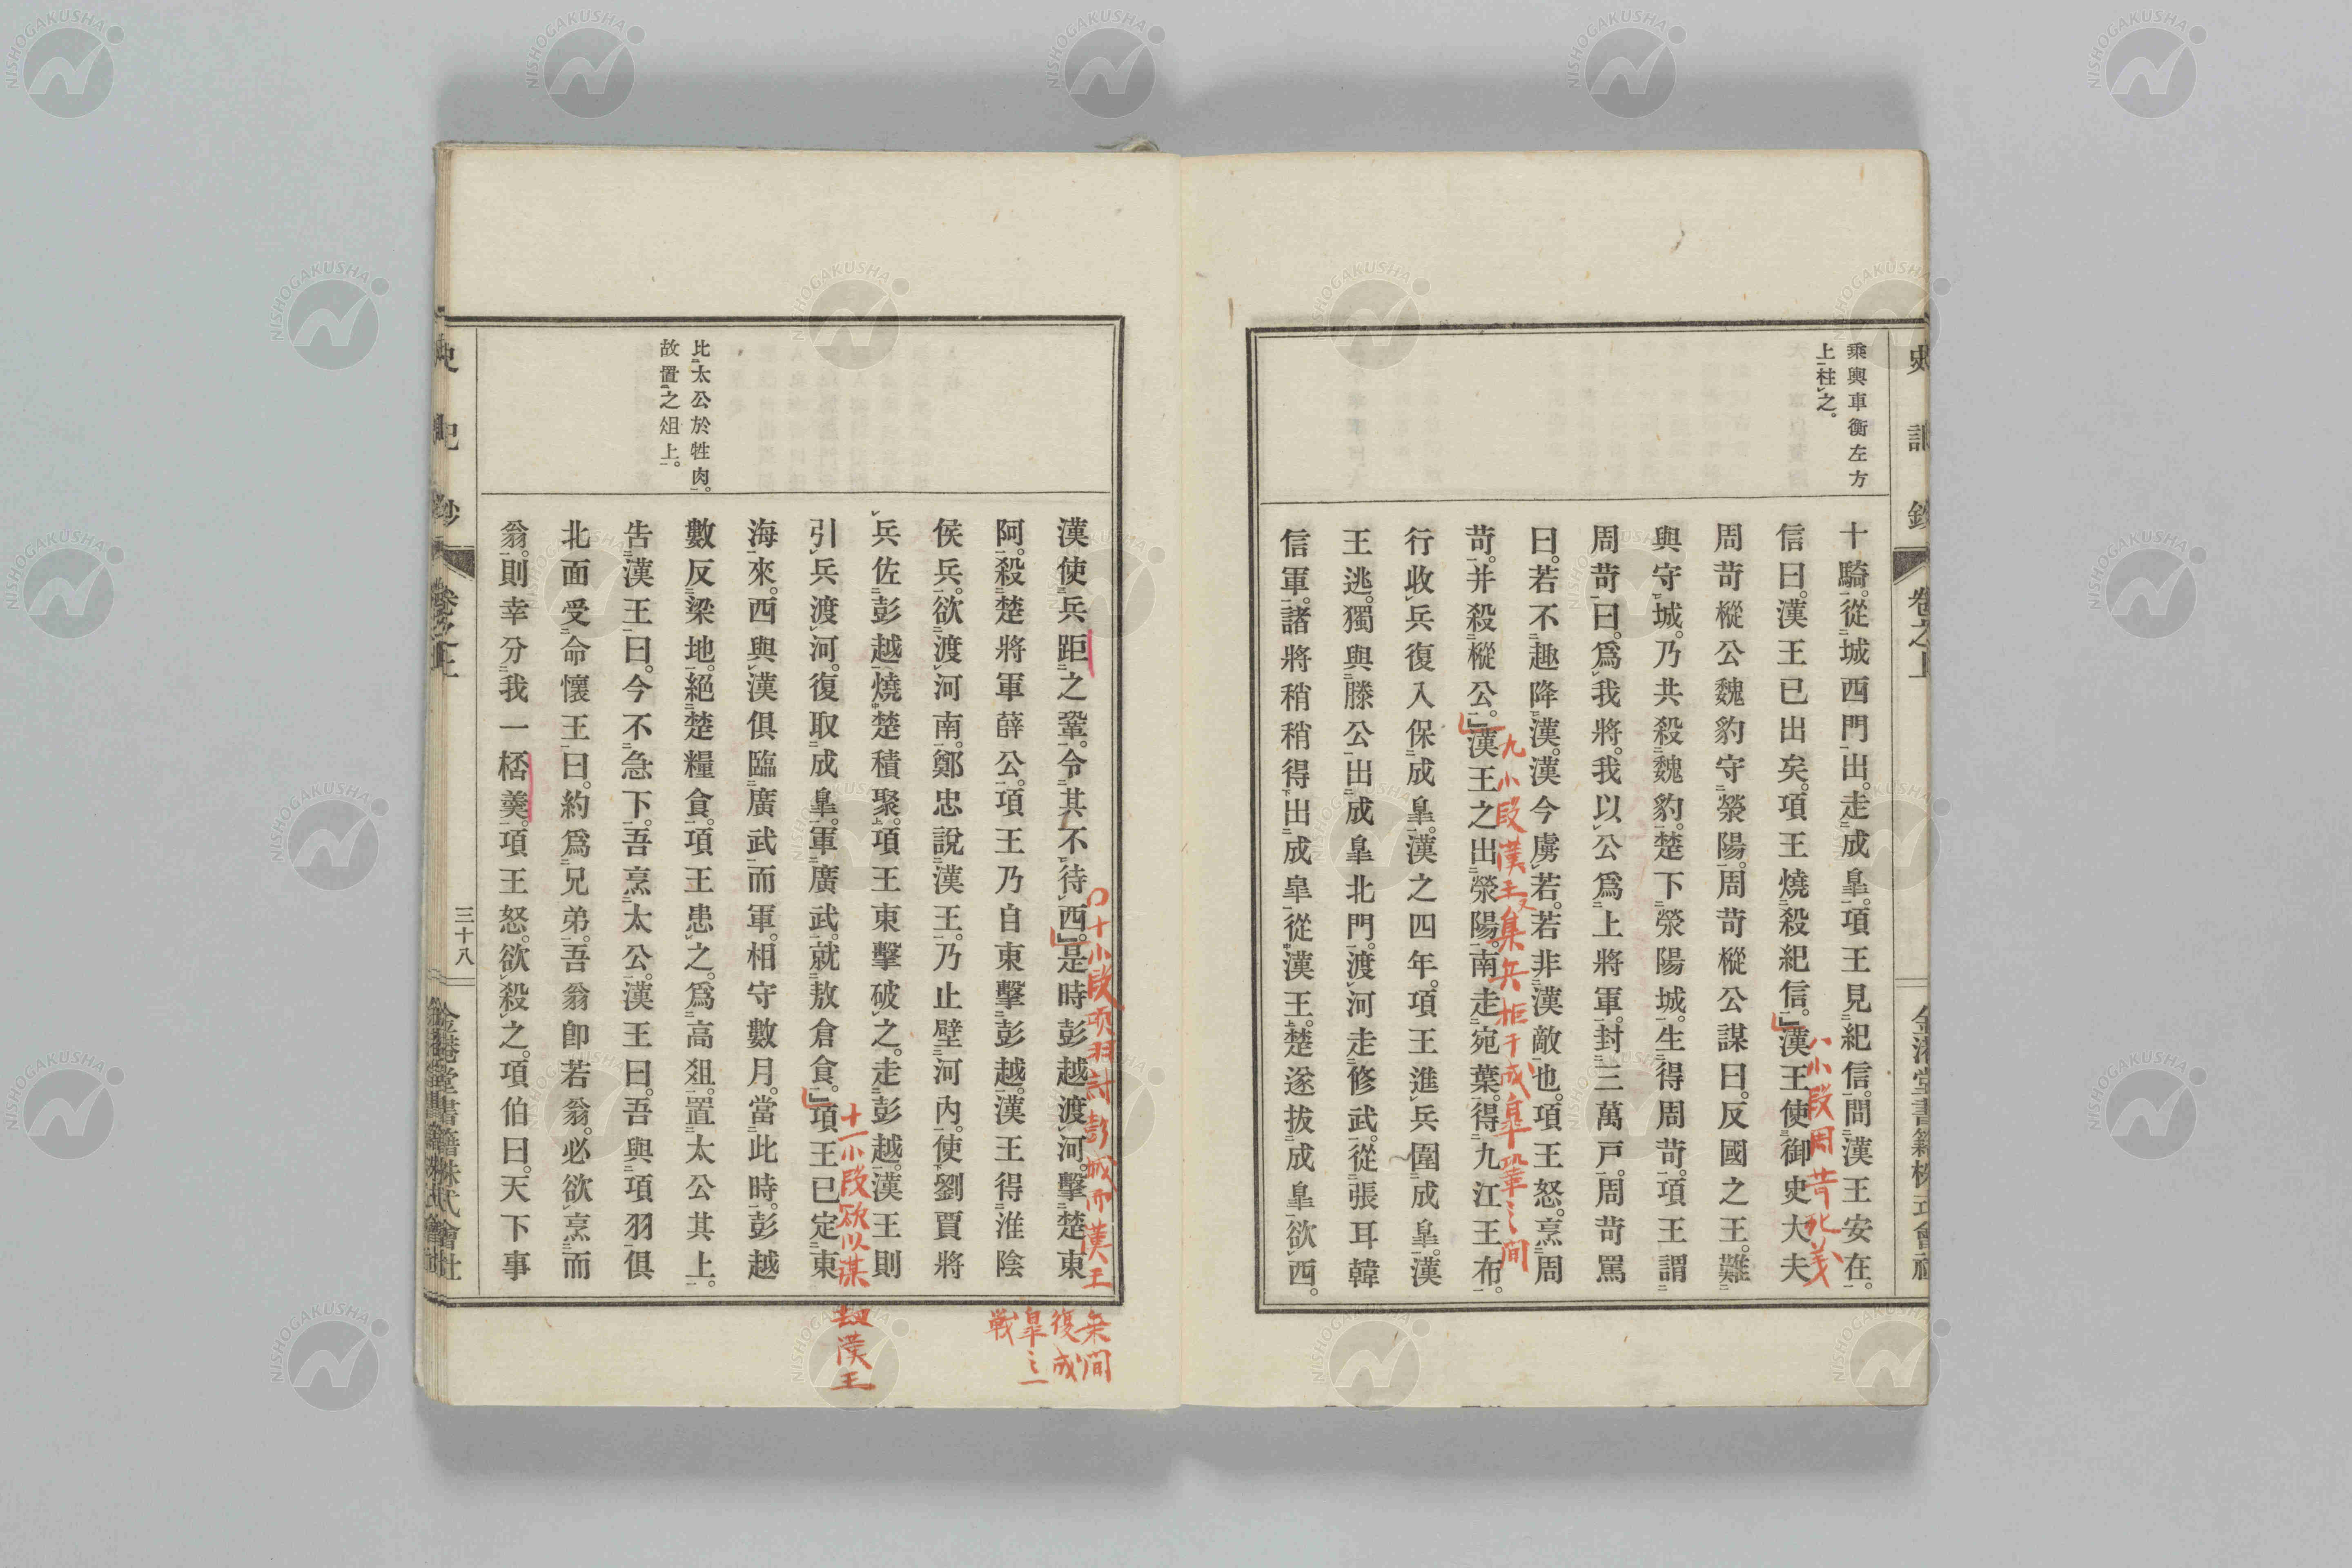 史記鈔 卷之上 金港堂書籍株式會社
乘輿車衡左方
上柱之。
十騎。從城西門出。走成皐。項王見紀信。問漢王安在。
信曰。漢王已出矣。項王燒殺紀信。」漢王使御史大夫
周苛樅公魏豹守滎陽。周苛樅公謀曰。反國之王。難
與守城。乃共殺魏豹。楚下滎陽城。生得周苛。項王謂
周苛曰。爲我將。我以公爲上將軍。封三萬戶。周苛罵
曰。若不趣降漢。漢今虜若。若非漢敵也。項王怒。烹周
苛。并殺樅公。」漢王之出滎陽。南走宛葉。得九江王布。
行收兵復入保成皐。漢之四年。項王進兵圍成皐。漢
王逃。獨與滕公出成皐北門。渡河走修武。從張耳韓
信軍。諸將稍稍得出成皐從漢王。楚遂拔成皐欲西。
八小段周苛死義
九小段漢王叉集兵拒于成皐鞏之間
漢使兵距之鞏。令其不待西。」是時彭越渡河。擊楚東
阿。殺楚將軍薛公。項王乃自東擊彭越。漢王得淮陰
侯兵。欲渡河南。鄭忠說漢王。乃止壁河內。使劉賈將
兵佐彭越。燒楚積聚。項王東擊破之。走彭越。漢王則
引兵渡河。復取成皐。軍廣武。就敖倉食。」項王已定東
海來。西與漢俱臨廣武而軍。相守數月。當此時。彭越
數反梁地。絕楚糧食。項王患之。爲高俎。置太公其上。
告漢王曰。今不急下。吾烹太公。漢王曰。吾與項羽俱
北面受命懷王曰。約爲兄弟。吾翁卽若翁。必欲烹而
翁。則幸分我一桮羹。項王怒。欲殺之。項伯曰。天下事
比太公於牲肉。
故置之俎上。
十小段項羽討彭城而漢王
乘間
復成
皐之
戰
十一小段欲以謀劫漢王
史記鈔 卷之上 三十八 金港堂書籍株式會社
NISHOGAKUSHA